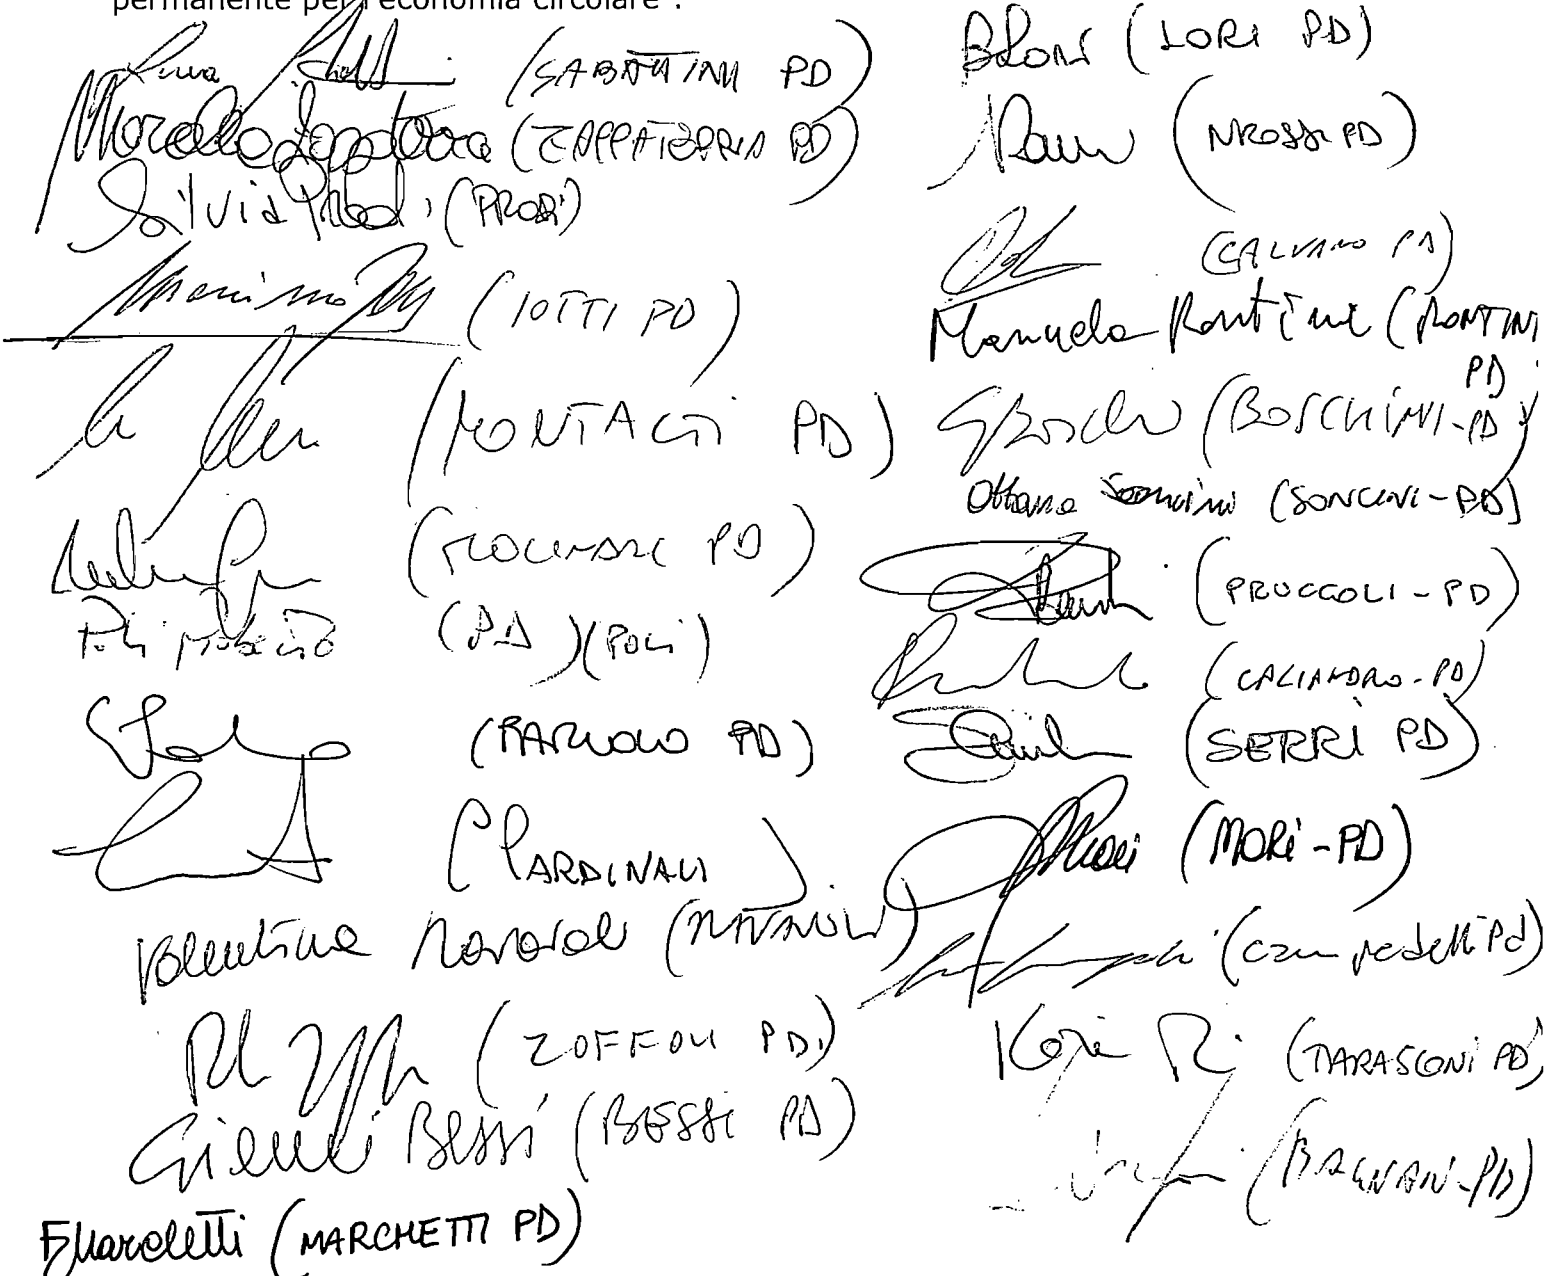 permanente per l'economia circolare".
(SABATTINI PD)
(ZAPPATERRA PD)
Silvia Prodi (PRODI)
(IOTTI PD)
(MONTALTI PD)
(MOLINARI PD)
(PD) (POLI)
(PARUOLO PD)
(CARDINALI)
Valentina Ravaioli (RAVAIOLI)
(ZOFFOLI PD)
Gianni Bessi (BESSI PD)
FMarchetti (MARCHETTI PD)
BLori (LORI PD)
(NROSSI PD)
(CALVANO PD)
Manuela Rontini (RONTINI PD)
(BOSCHINI-PD)
Ottavia Soncini (SONCINI-PD)
(PRUCCOLI-PD)
(CALIANDRO-PD)
(SERRI PD)
(MORI-PD)
(campedelli Pd)
Katia (TARASCONI PD)
(BAGNARI-PD)